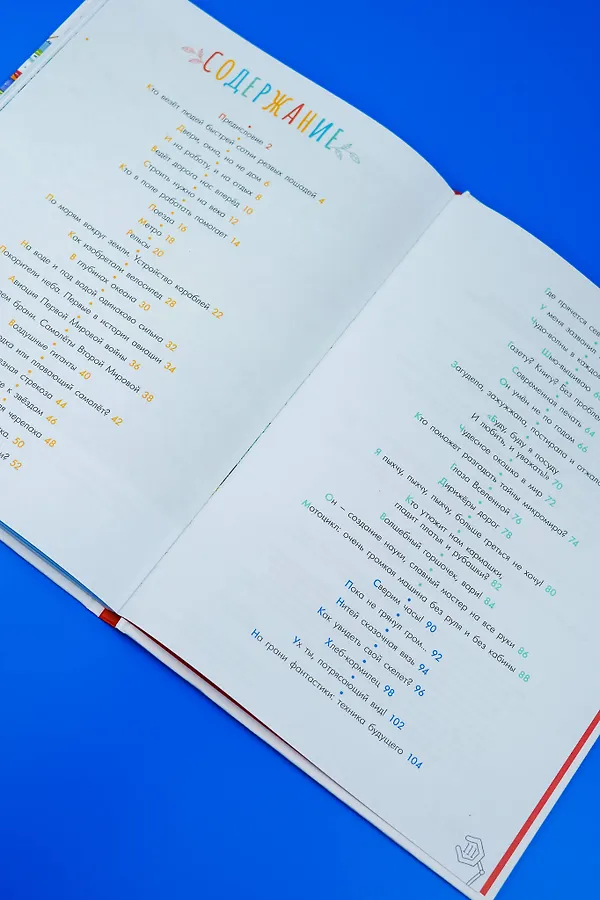 СОДЕРЖАНИЕ
Предисловие 2
Кто везёт людей быстрей сотни резвых лошадей 4
Двери, окна, но не дом 6
И на работу, и на отдых 8
Ведёт дорога нас вперёд 10
Строить нужно на века 12
Кто в поле работать помогает 14
Поезда 16
Метро 18
Рельсы 20
По морям вокруг земли. Устройство кораблей 22
Как изобретали велосипед 28
В глубинах океана 30
На воде и под водой одинаково сильна 32
Покорители неба. Первые в истории авиации 34
Авиация Первой Мировой войны 36
брани. Самолёты Второй Мировой 38
Воздушные гиганты 40
или плавающий самолёт? 42
стрекоза 44
к звёздам 46
черепаха 48
50
52
Где прячется
У меня зазвонил
Чудо-волны в каждом
Шью-вышиваю
Газету? Книгу? Без проблем
Современная печать 64
Он умён не по годам 66
Загудела, зажужжала, постирала и отжала
«Буду, буду я посуду
И любить, и уважать!» 70
Чудесное окошко в мир 72
Кто поможет разгадать тайны микромира? 74
Глаза Вселенной 76
Дирижёры дорог 78
Я пыхчу, пыхчу, пыхчу, больше греться не хочу! 80
Кто утюжит нам кармашки,
гладит платья и рубашки? 82
Волшебный горшочек, вари! 84
Он – создание науки, славный мастер на все руки 86
Мотоцикл: очень громкая машина без руля и без кабины 88
Сверим часы! 90
Пока не грянул гром... 92
Нитей сказочная вязь 94
Как увидеть свой скелет? 96
Хлеб-кормилец 98
Ух ты, потрясающий вид! 102
На грани фантастики: техника будущего 104